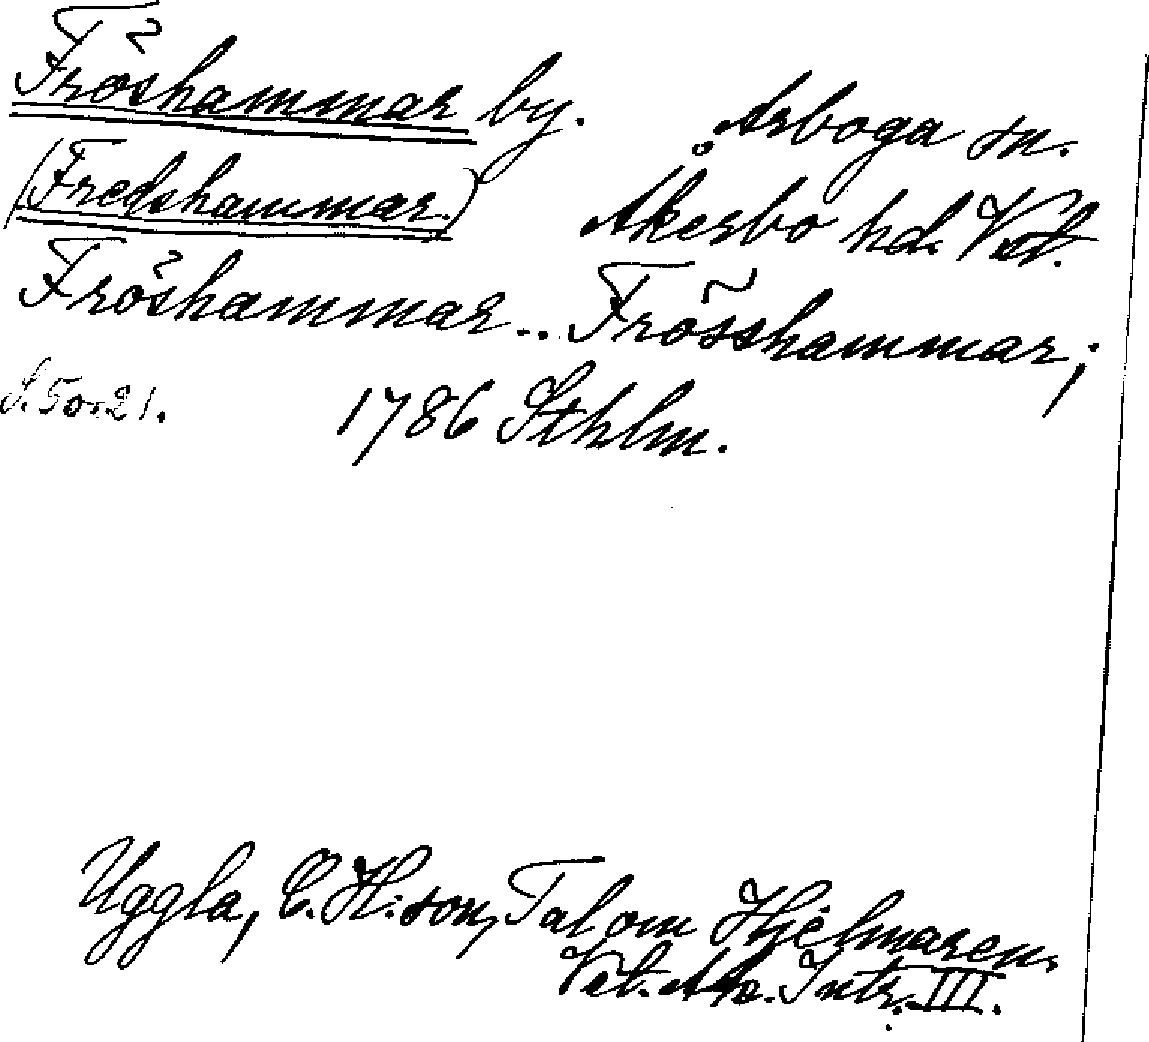 Fröshammar by. Arboga sn.
(Fredshammar.) Åkerbo hd. Vstm.
Fröshammar.. Frösshammar;
S. 5 o. 21. 1786 Sthlm.
Uggla, C. H:son, Tal om Hjelmaren.
Vet. Ak. Intr. III.